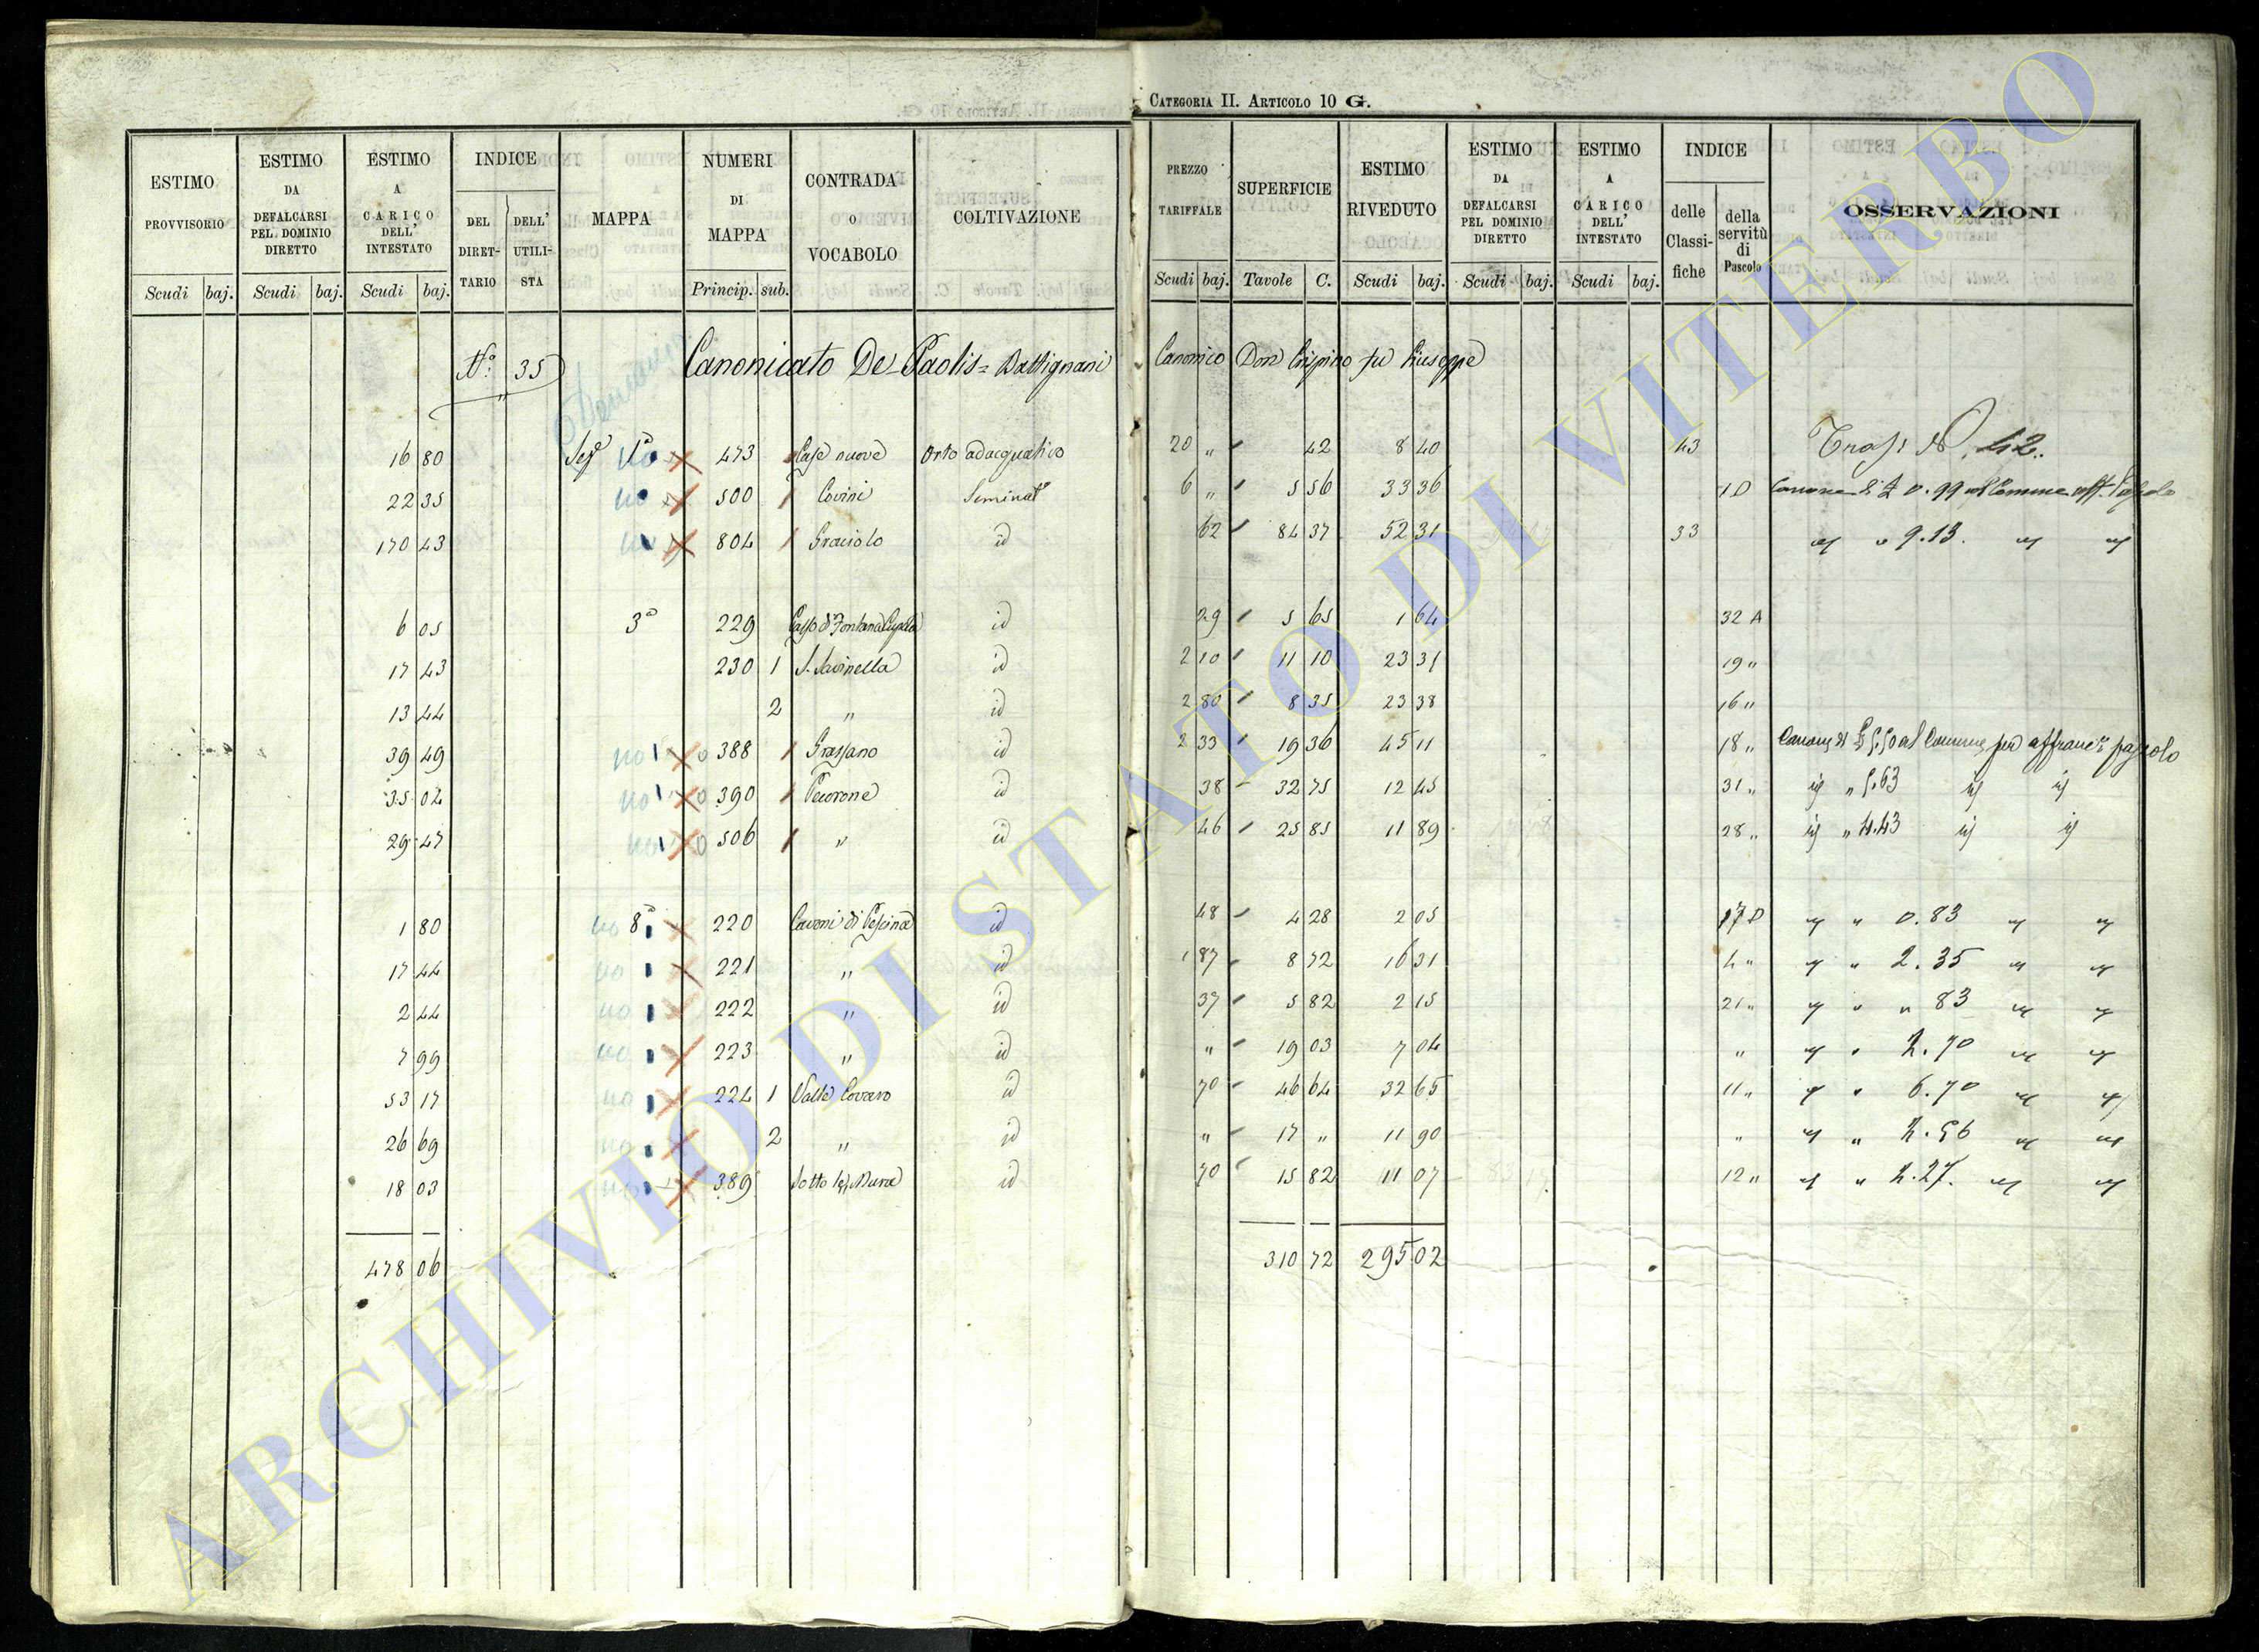 CATEGORIA II. ARTICOLO 10 G.
ESTIMO PROVVISORIO Scudi baj.
ESTIMO DA DEFALCARSI PEL DOMINIO DIRETTO Scudi baj.
ESTIMO A CARICO DELL' INTESTATO Scudi baj.
INDICE DEL DIRET-TARIO DELL' UTILI-STA
MAPPA
NUMERI DI MAPPA Princip. sub.
CONTRADA O VOCABOLO
COLTIVAZIONE
PREZZO TARIFFALE Scudi baj.
SUPERFICIE Tavole C.
ESTIMO RIVEDUTO Scudi baj.
ESTIMO DA DEFALCARSI PEL DOMINIO DIRETTO Scudi baj.
ESTIMO A CARICO DELL' INTESTATO Scudi baj.
INDICE delle Classi-fiche della servitù di Pascolo
OSSERVAZIONI
N.° 35 Canonicato De-Paolis= Battignani Canonico Don Crispino fu Giuseppe
Demanio
16 80 Sez 1ª no 473 Case nuove Orto adacquativo 20 " 42 8 40 43 42
22 35 no 500 Covini Seminatº 6 " 5 56 33 36 1 D Canone di 0.99 Comune Pascolo
170 43 no 804 Graciolo id 62 84 37 52 31 33 " 9.13.
6 05 3ª 229 Fontana id 29 5 65 1 64 32 A
17 43 230 1 S. Savinella id 2 10 11 10 23 31 19 "
13 44 2 " id 2 80 8 35 23 38 16 "
39 49 no 388 Grassano id 2 33 19 36 45 11 18 " Canone di al Comune per pascolo
35 02 no 390 Pecorone id 38 32 75 12 45 31 " id " 5.63 id id
29 47 no 506 " id 46 25 85 11 89 28 " id " 4.43 id id
1 80 no 8ª 220 Cavoni di Pescina id 48 4 28 2 05 17 D " 0.83
17 44 no 221 " id 1 87 8 72 16 31 4 " " 2.35
2 44 no 222 " id 37 5 82 2 15 21 " " " 83
7 99 no 223 " id " 19 03 7 04 " " 2.70
53 17 no 224 1 Valle Covaro id 70 46 64 32 65 11 " " 6.70
26 69 no 2 " id " 17 " 11 90 " " 2.56
18 03 no 389 Sotto le Mura id 70 15 82 11 07 12 " " 2.27.
478 06 310 72 295 02
ARCHIVIO DI STATO DI VITERBO